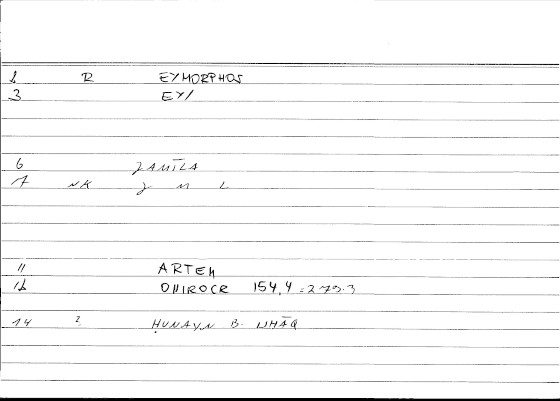 2 R EYMORPHOS
3 EY/
6 JAMĪLA
7 NK J M L
11 ARTEM
12 ONIROCR 154,4 = 279.3
14 2 ḤUNAYN B. ISHĀQ